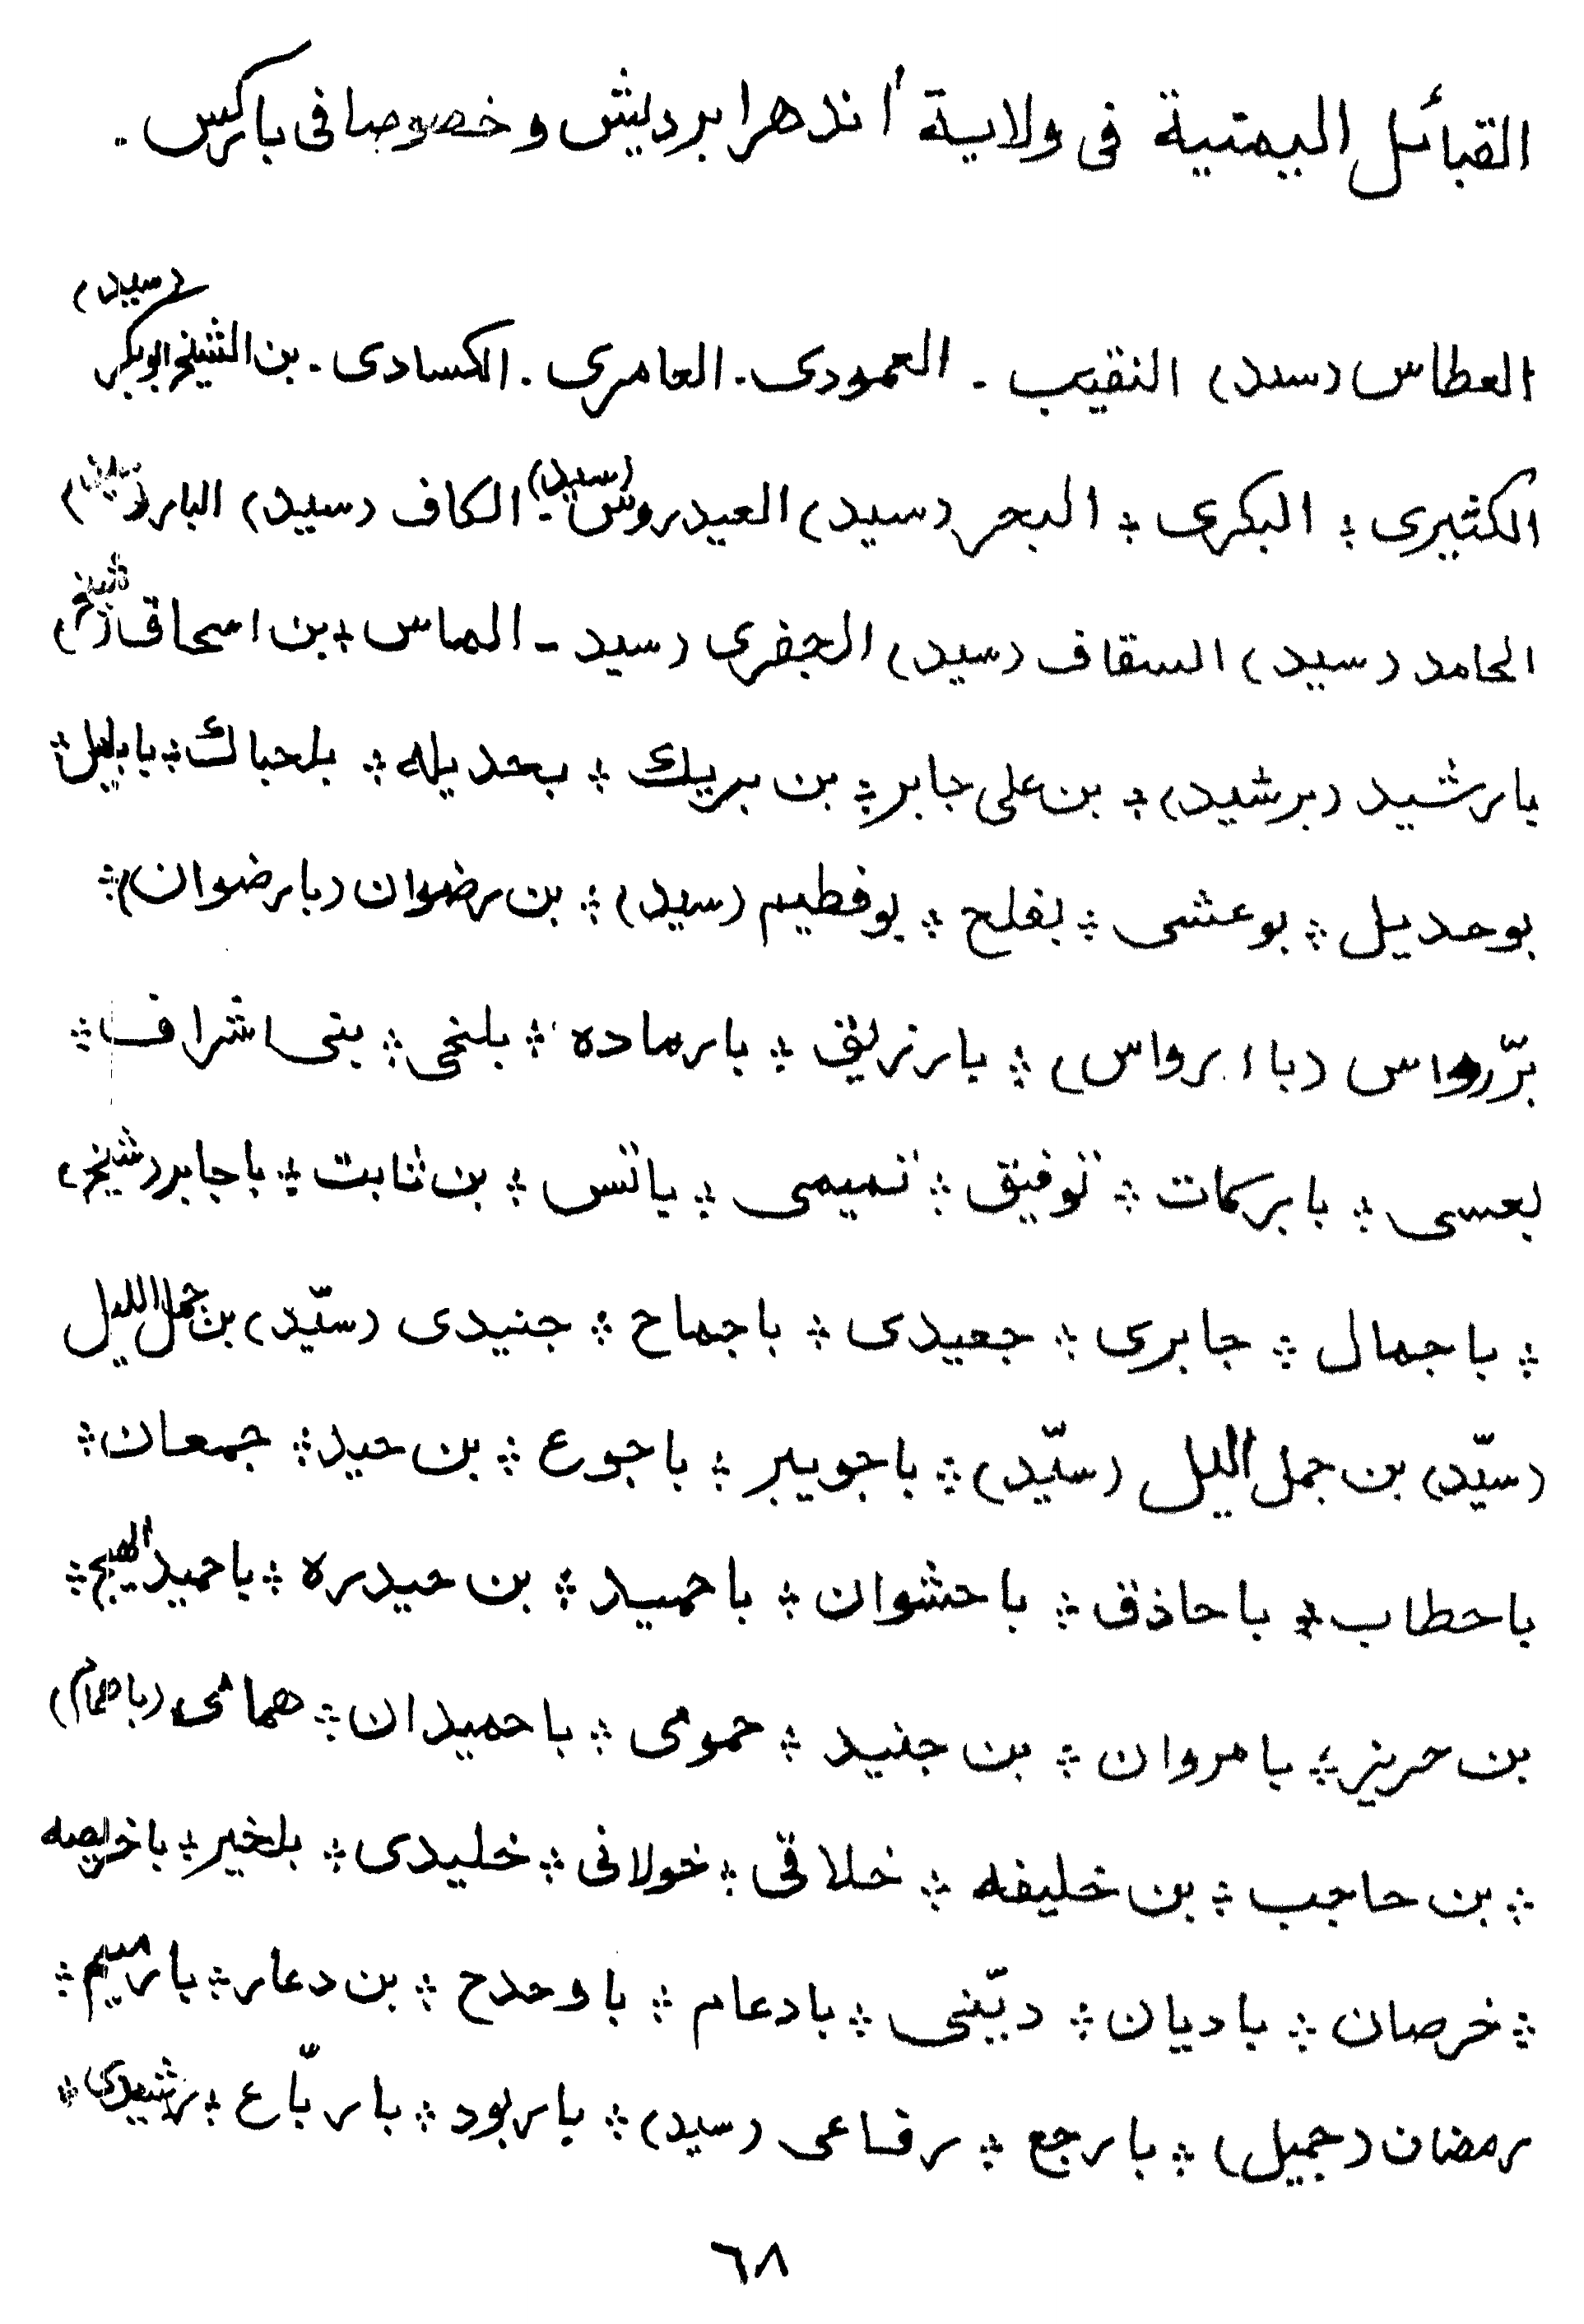 القبائل اليمنية فى ولاية أندهرا برديش و خصوصا فى باركس .
العطاس (سيد) النقيب - العمودى - العامرى . الكسادى . بن الشيخ ابوبكر (سيد)
الكثيرى ؞ البكرى ؞ البحر (سيد) العيدروس (سيد) - الكاف (سيد) البار (سيد)
الحامد (سيد) السقاف (سيد) الجفرى (سيد - الماس ؞ بن اسحاق (شيخ)
بارشيد (برشيد) ؞ بن على جابر ؞ بن بريك ؞ بحديله ؞ بلحباك ؞ بابليل ؞
بوحديل ؞ بوعشى ؞ بفلح ؞ بوفطيم (سيد) ؞ بن رضوان (بارضوان) ؞
برّرواس (با ارواس) ؞ بارزيق ؞ بارماده ؞ بلخى ؞ بنى اشراف ؞
بعسى ؞ بابركات ؞ توفيق ؞ تميمى ؞ باتس ؞ بن ثابت ؞ باجابر (شيخ)
؞ باجمال ؞ جابرى ؞ جعيدى ؞ باجماح ؞ جنيدى (سيّد) بن جمل الليل
(سيّد) بن جمل الليل (سيّد) ؞ باجويبر ؞ باجوع ؞ بن حيد ؞ جمعان ؞
باحطاب ؞ باحاذق ؞ باحشوان ؞ باحميد ؞ بن حيدره ؞ باحميد
بن حريز ؞ بامروان ؞ بن جنيد ؞ حمومى ؞ باحميدان ؞ همامى (باهمام)
؞ بن حاجب ؞ بن خليفه ؞ خلاقى ؞ خولانى ؞ خليدى ؞ بلخير ؞ باخريصه
؞ خرصان ؞ باديان ؞ ديّنى ؞ بادعام ؞ باوحدح ؞ بن دعار ؞ بارميم ؞
رمضان (جميل) ؞ بارجع ؞ رفاعى (سيد) ؞ باربود ؞ باربّاع ؞ رشيدى ؞
٦٨